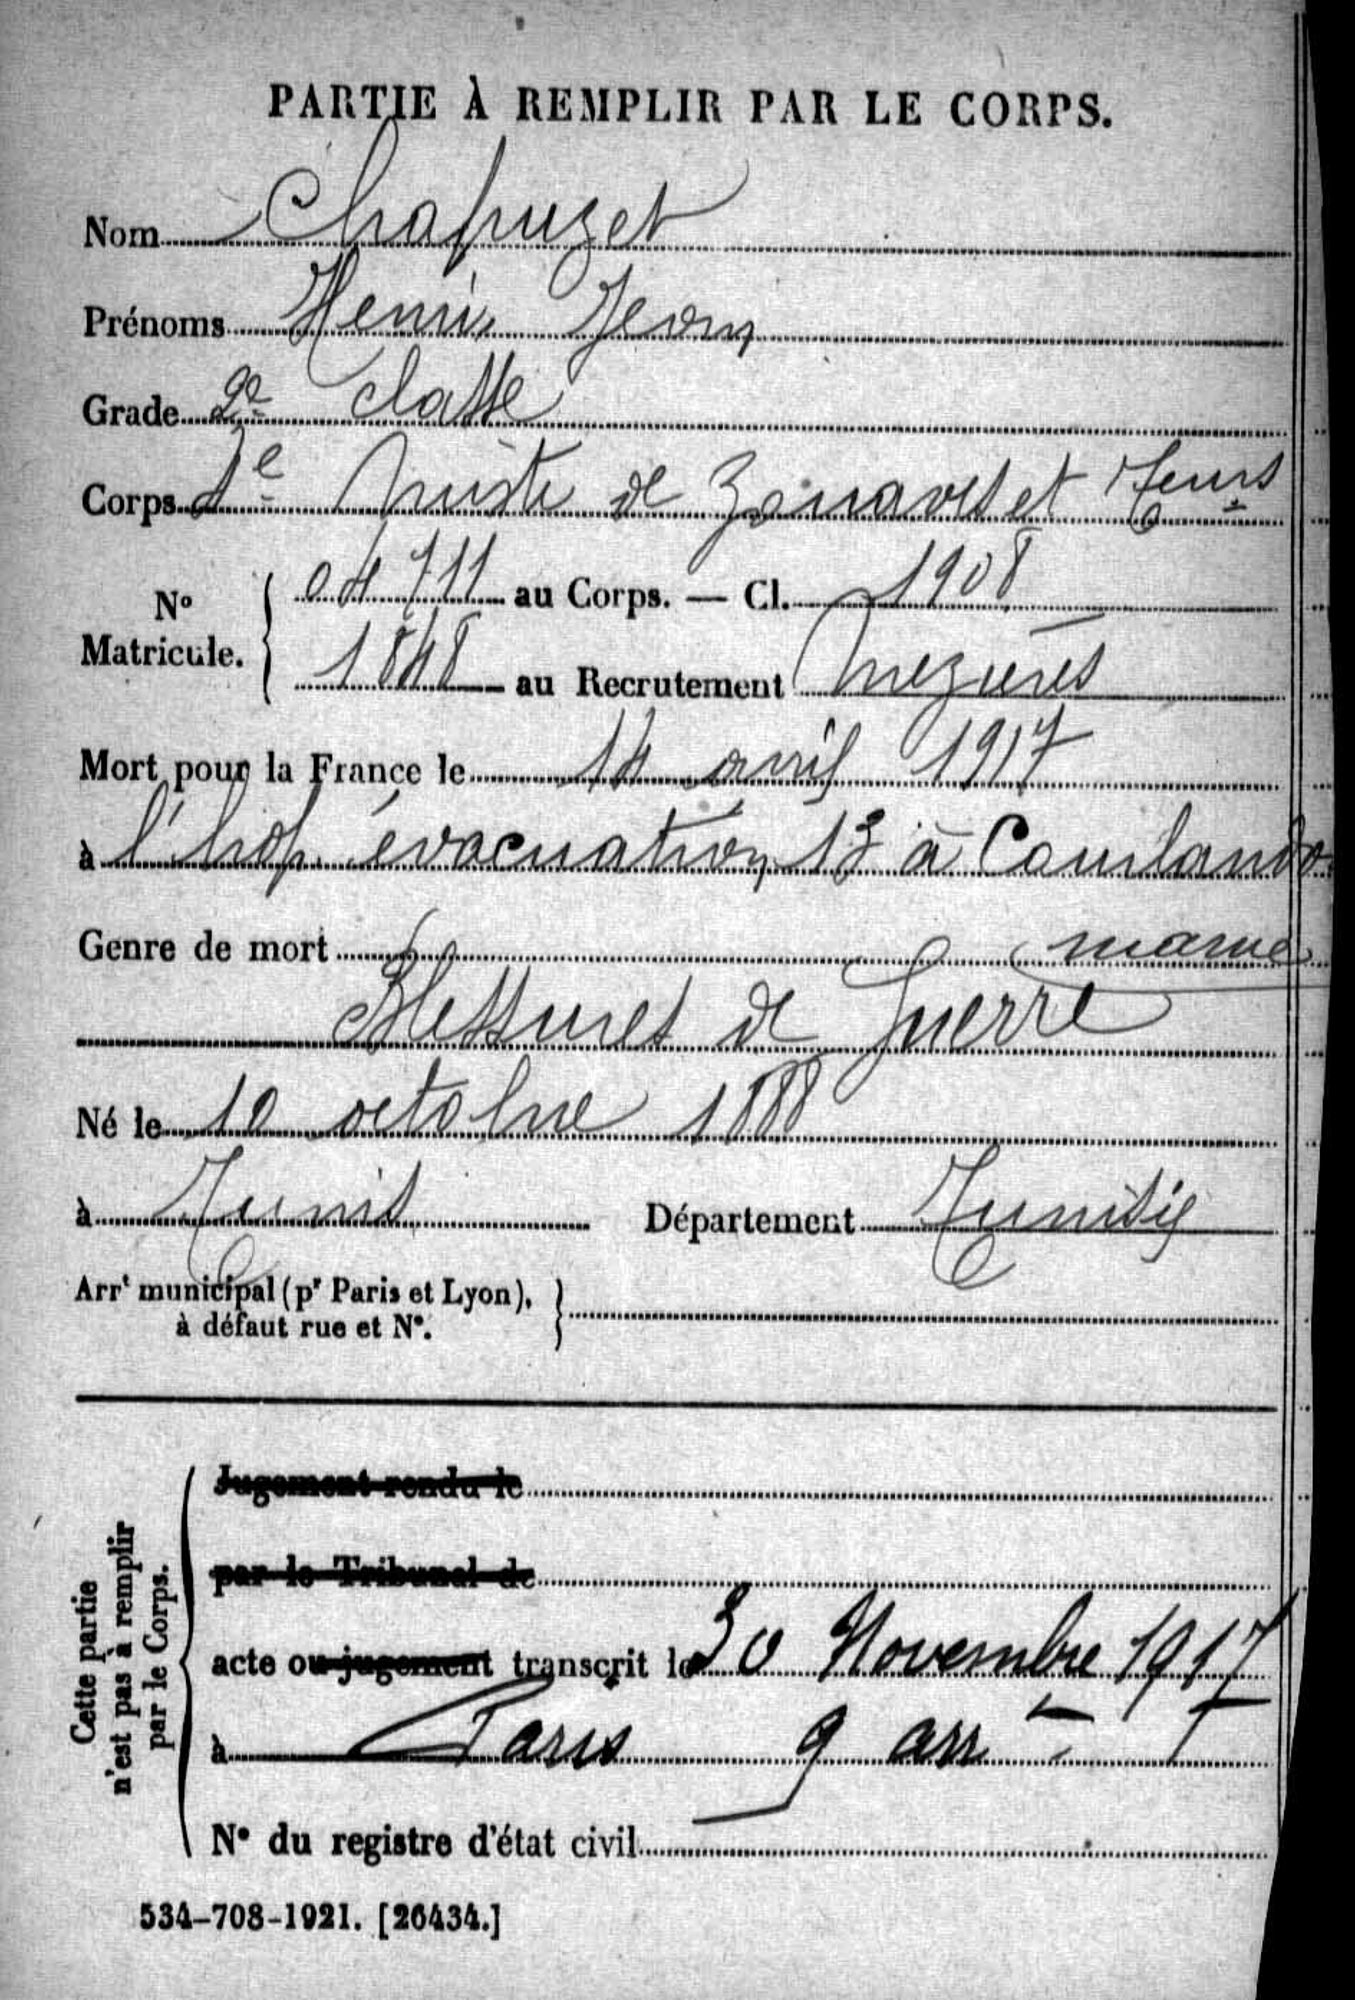 PARTIE À REMPLIR PAR LE CORPS.
Nom Chapuzet
Prénoms Henri, Jean
Grade 2e classe
Corps 1e Mixte de Zouaves et Teurs
No Matricule. 04711 au Corps. — Cl. 1908
1848 au Recrutement Mézières
Mort pour la France le 14 avril 1917
à l'hop. évacuation 13 à Courlando
Marne
Genre de mort
Blessures de Guerre
Né le 10 octobre 1888
à Tunis Département Tunisie
Arrt municipal (pr Paris et Lyon),
à défaut rue et No.
Cette partie
n'est pas à remplir
par le Corps.
Jugement rendu le
par le Tribunal de
acte ou jugement transcrit le 30 Novembre 1917
à Paris 9 arr
No du registre d'état civil
534-708-1921. [26434.]